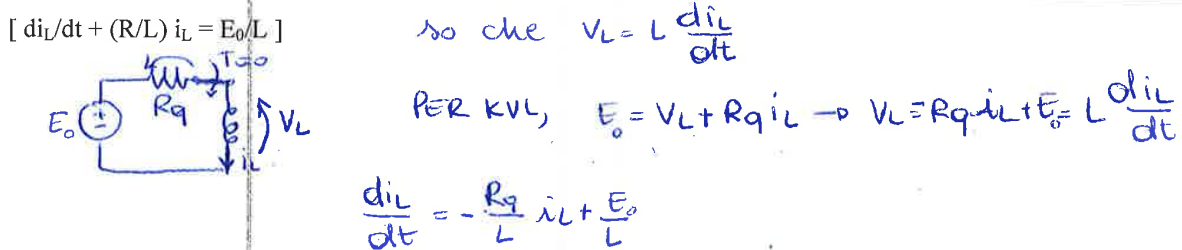 [ di_L/dt + (R/L) i_L = E_0/L ]
so che V_L = L di_L/dt
T=0
Rq
E_0
V_L
i_L
PER KVL, E_0 = V_L + Rq i_L → V_L = -Rq i_L + E_0 = L di_L/dt
di_L/dt = - Rq/L i_L + E_0/L